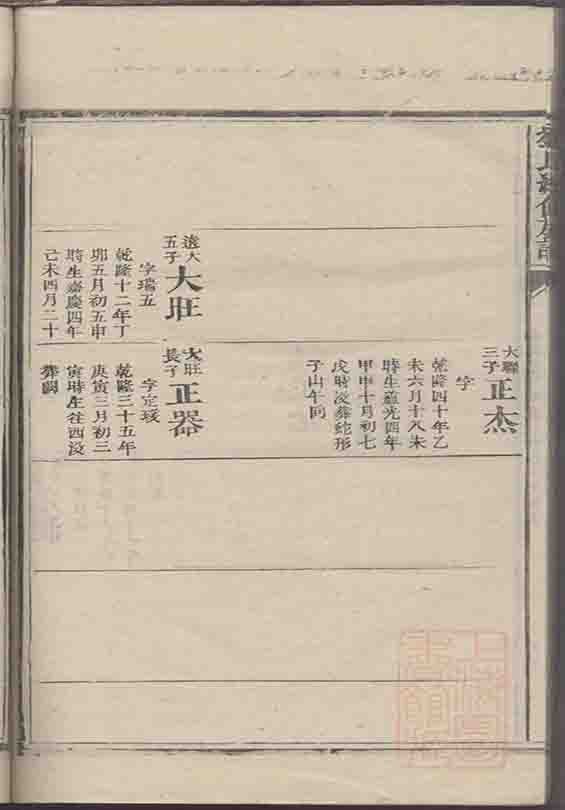 大聯三子
正杰
字
乾隆四十年乙
未六月十八未
時生道光四年
甲申十月初七
戌時沒葬蛇形
子山午向
遠大五子
大旺
字瑞五
乾隆十二年丁
卯五月初五申
時生嘉慶四年
己未四月二十
大旺長子
正器
字定琰
乾隆三十五年
庚寅三月初三
寅時生往西沒
葬闕
氏續修族譜